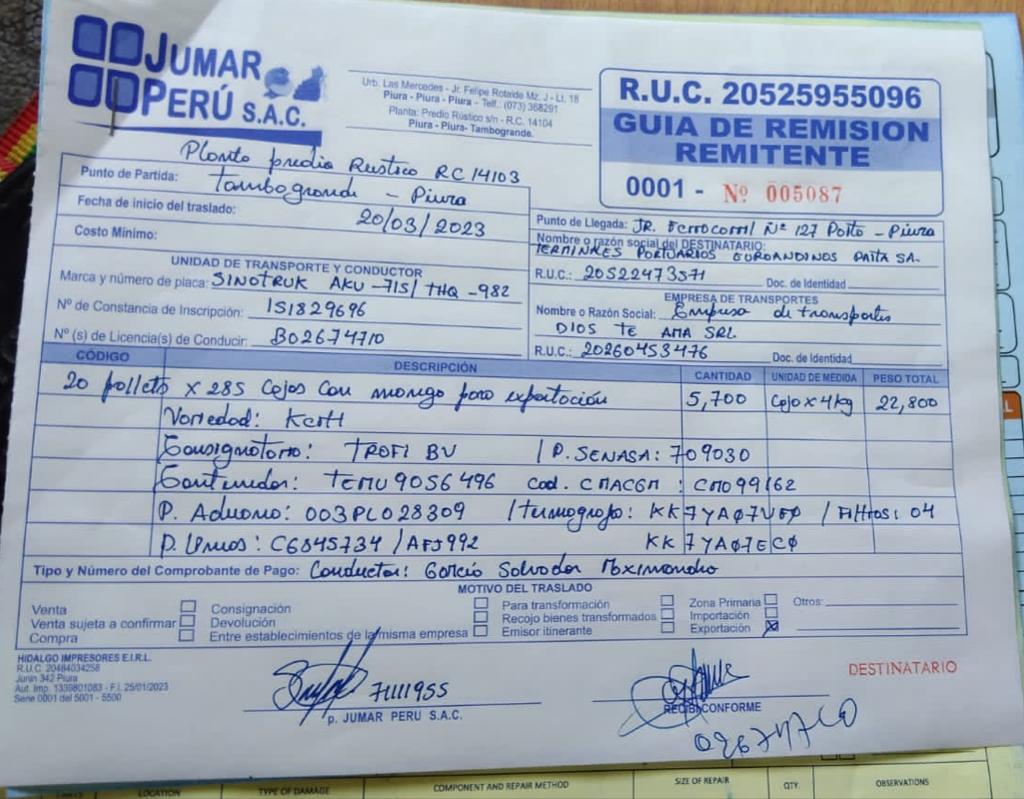 JUMAR
PERÚ S.A.C.
Urb. Las Mercedes - Jr. Felipe Rotalde Mz. J - Lt. 18
Piura - Piura - Piura - Telf.: (073) 368291
Planta: Predio Rústico s/n - R.C. 14104
Piura - Piura- Tambogrande.
R.U.C. 20525955096
GUIA DE REMISION
REMITENTE
0001 - Nº 005087
Planta predio Rustico RC 14103
Punto de Partida: Tambogrande - Piura
Fecha de inicio del traslado: 20/03/2023
Costo Mínimo:
Punto de Llegada: JR. Ferrocarril Nº 127 Paita - Piura
Nombre o razón social del DESTINATARIO:
TERMINALES PORTUARIOS EUROANDINOS PAITA SA.
R.U.C.: 20522473571 Doc. de Identidad
UNIDAD DE TRANSPORTE Y CONDUCTOR
Marca y número de placa: SINOTRUK AKU-715/ THQ-982
Nº de Constancia de Inscripción: 151829696
Nº (s) de Licencia(s) de Conducir: B02674710
EMPRESA DE TRANSPORTES
Nombre o Razón Social: Empresa de transportes
DIOS TE AMA SRL
R.U.C.: 20260453476 Doc. de Identidad
CÓDIGO DESCRIPCIÓN CANTIDAD UNIDAD DE MEDIDA PESO TOTAL
20 pallets x 285 Cajas con mango para exportación 5,700 Caja x 4kg 22,800
Variedad: Kent
Consignatario: TROFI BV / P. SENASA: 709030
Contenedor: TEMU9056496 Cod. CMACGM : CM099162
P. Aduana: 003PL028309 / termografo: KK7YA07 / Filtros: 04
P. : C6845734 / AFJ992 KK7YA07EC0
Tipo y Número del Comprobante de Pago: Conductor: Garcia Salvador
MOTIVO DEL TRASLADO
Venta
Venta sujeta a confirmar
Compra
Consignación
Devolución
Entre establecimientos de la misma empresa
Para transformación
Recojo bienes transformados
Emisor itinerante
Zona Primaria
Importación
Exportación X
Otros:
HIDALGO IMPRESORES E.I.R.L.
R.U.C. 20484034258
Junin 342 Piura
Aut. Imp. 1339801083 - F.I. 25/01/2023
Serie 0001 del 5001 - 5500
71111955
p. JUMAR PERU S.A.C.
RECIBI CONFORME
DESTINATARIO
LOCATION TYPE OF DAMAGE COMPONENT AND REPAIR METHOD SIZE OF REPAIR QTY. OBSERVATIONS